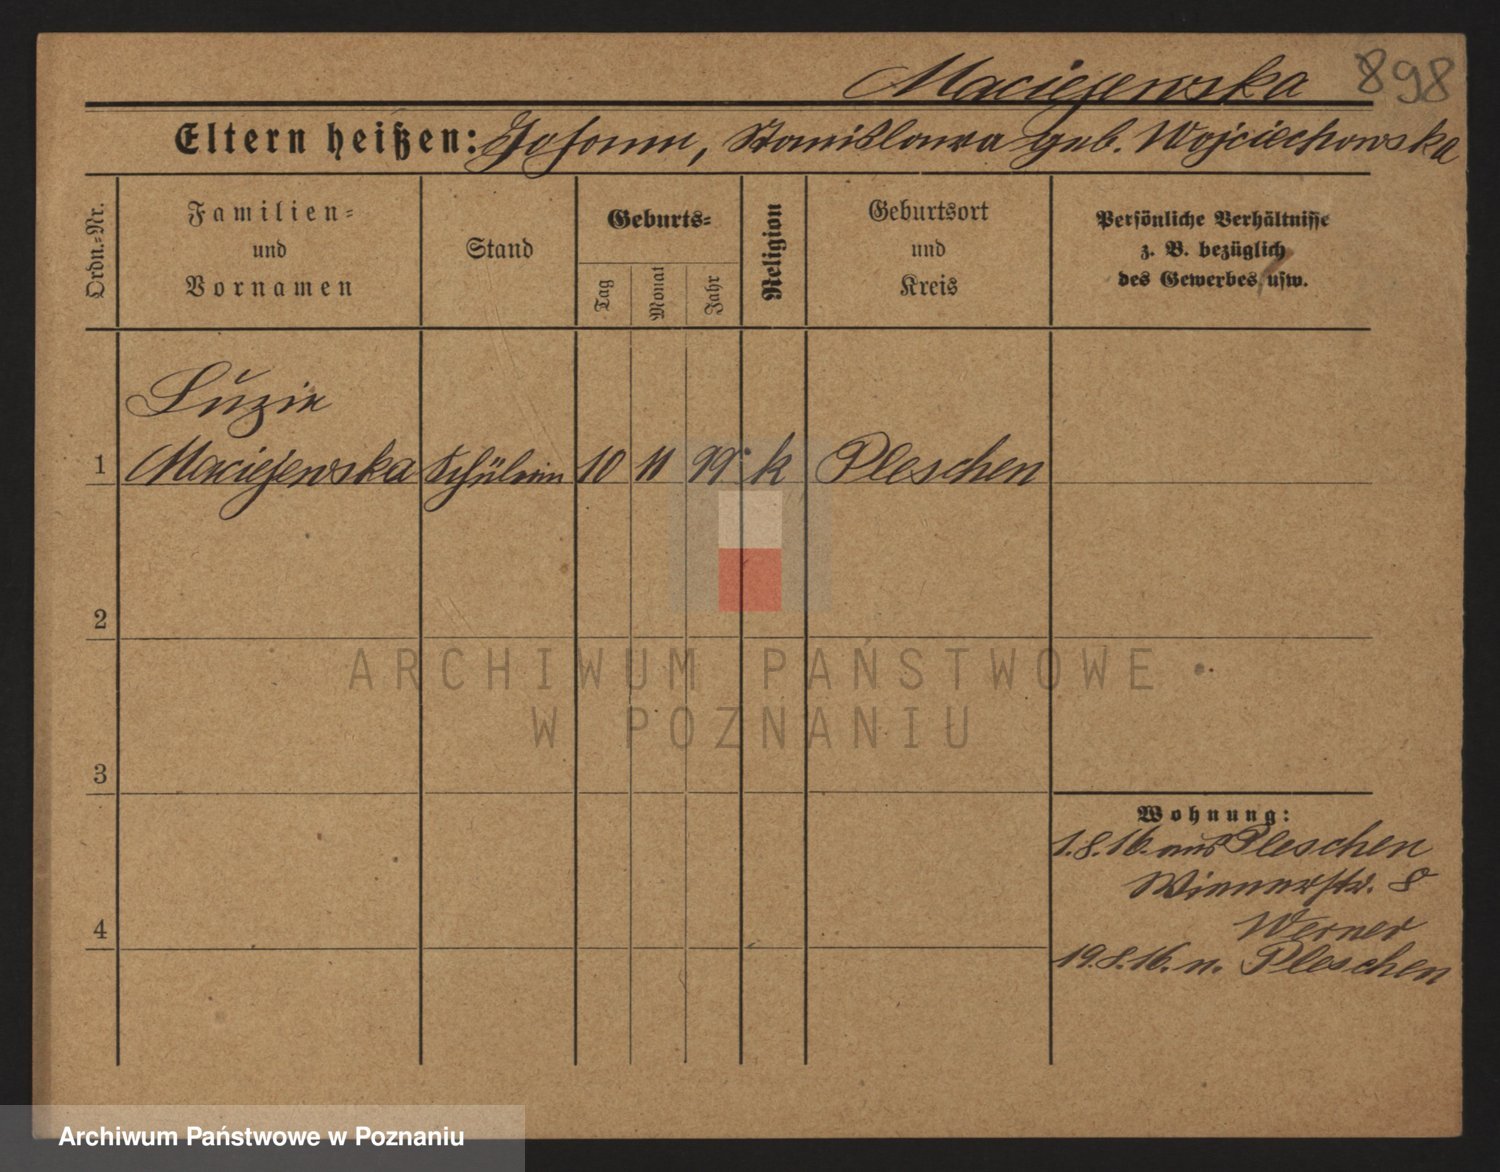 Maciejewska 898
Eltern heißen: Johann, Stanislawa geb. Wojciechowska
Ordn.-Nr.
Familien-
und
Vornamen
Stand
Geburts-
Tag
Monat
Jahr
Religion
Geburtsort
und
Kreis
Persönliche Verhältnisse
z. B. bezüglich
des Gewerbes usw.
Luzie
1 Maciejewska Schülerin 10 11 99 k Pleschen
2
ARCHIWUM PAŃSTWOWE
W POZNANIU
3
Wohnung:
1.8.16. aus Pleschen
Wienerstr. 8
4
Werner
19.8.16. n. Pleschen
Archiwum Państwowe w Poznaniu